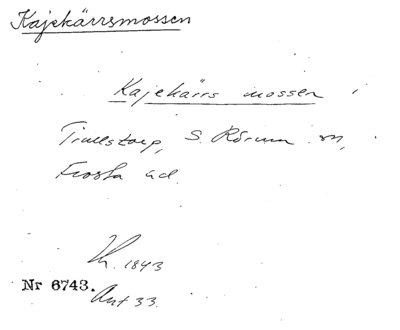 Kajekärrsmossen
Kajekärrs mossen i
Timlstorp, S. Rörum sn,
Frosta hd.
Kr. 1843
Nr 6743.
Ant 33.